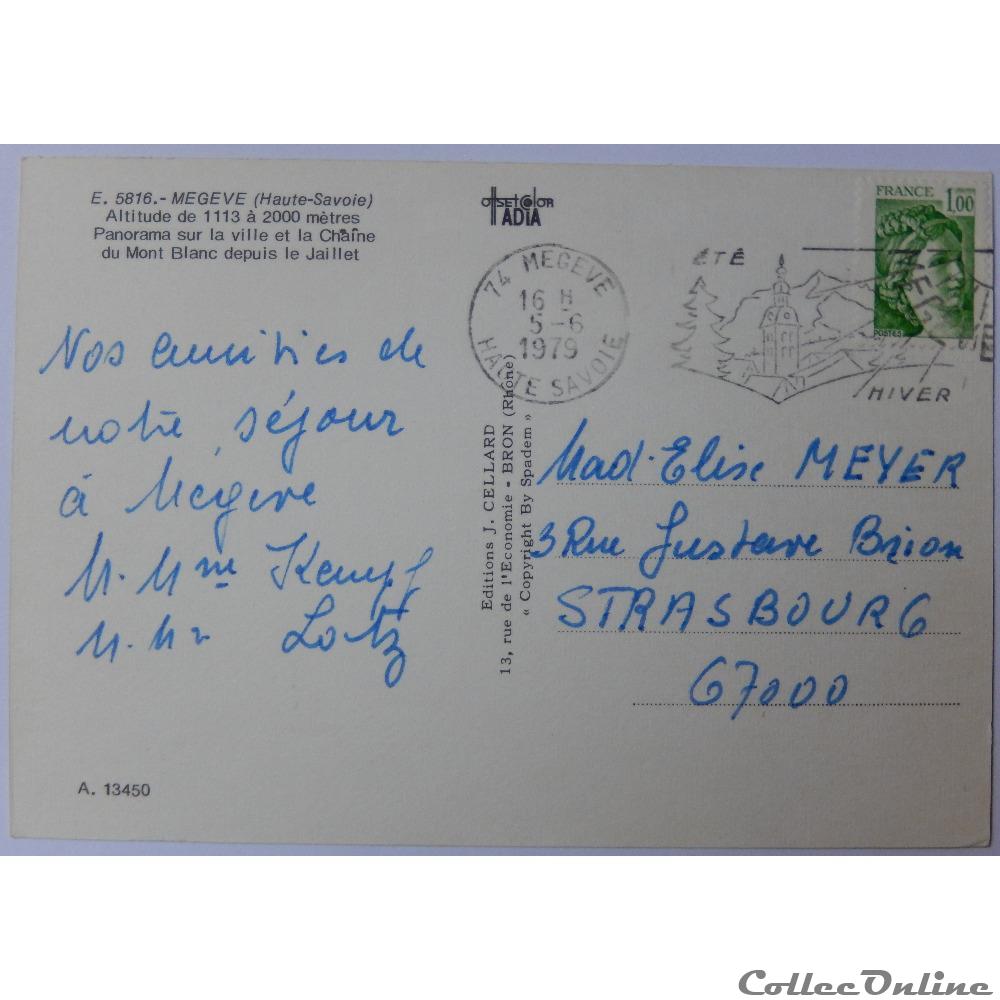 E. 5816.- MEGEVE (Haute-Savoie)
Altitude de 1113 à 2000 mètres
Panorama sur la ville et la Chaîne
du Mont Blanc depuis le Jaillet
OffsetColor
ADIA
FRANCE 1,00
POSTES
74 MEGEVE
16 H
5-6
1979
HAUTE SAVOIE
ÉTÉ
MEGEVE
HIVER
Nos amitiés de
notre séjour
à Mégève
M. Mme Kempf
M. Mr Lotz
Editions J. CELLARD
13, rue de l'Economie - BRON (Rhône)
« Copyright By Spadem »
Mad. Elise MEYER
3 Rue Gustave Brion
STRASBOURG
67000
A. 13450
CollecOnline